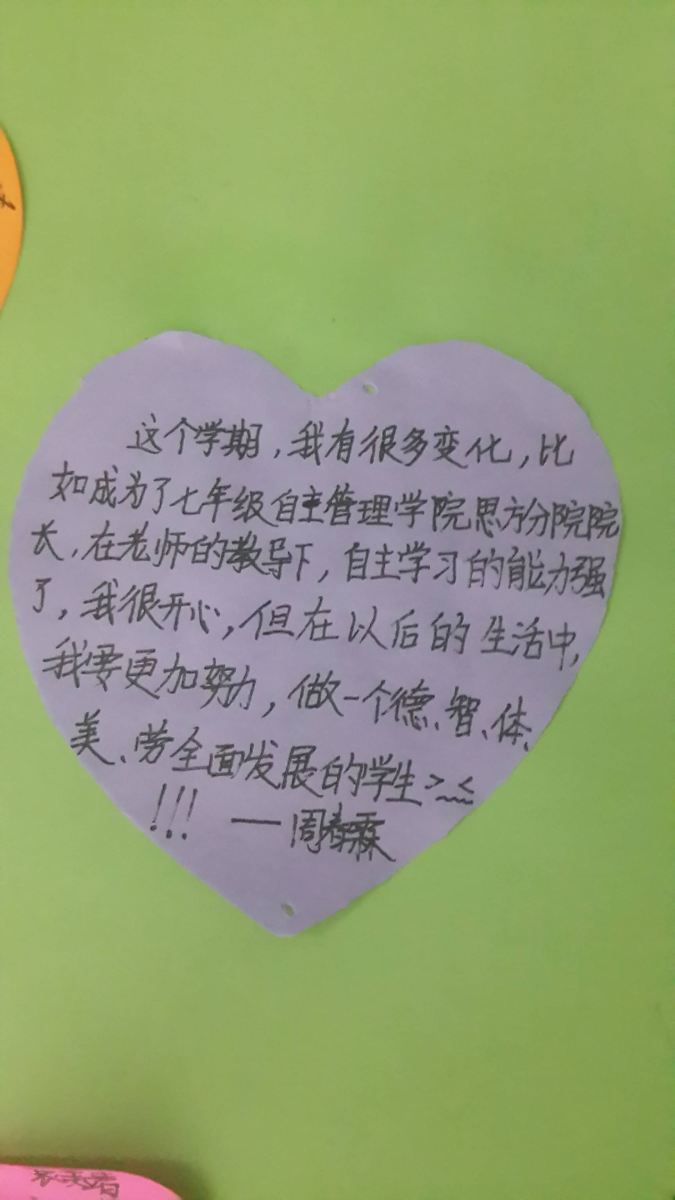 这个学期，我有很多变化，比
如成为了七年级自主管理学院思方分院院
长，在老师的教导下，自主学习的能力强
了，我很开心，但在以后的生活中，
我要更加努力，做一个德、智、体、
美、劳全面发展的学生>﹏<
!!! ——周春霖